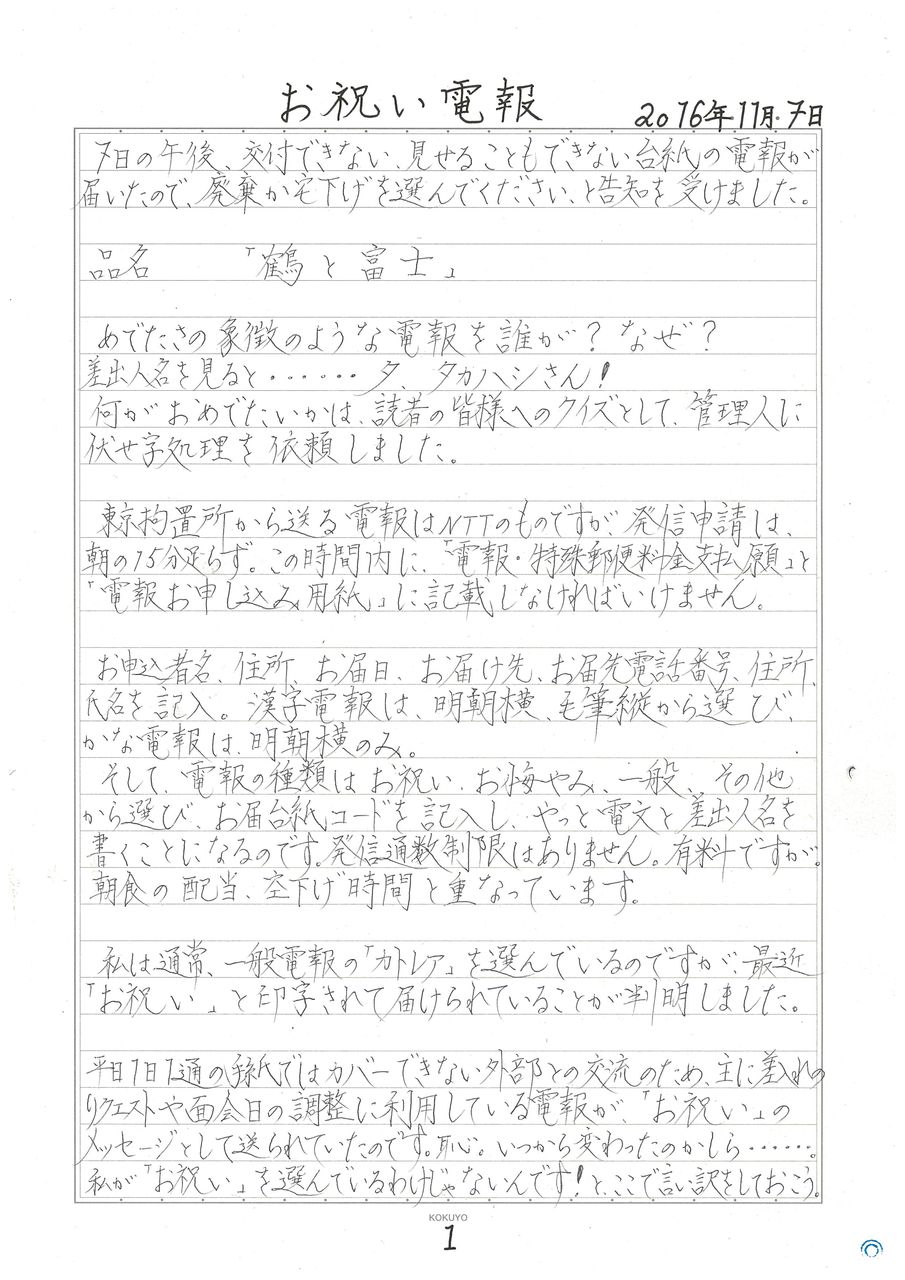 お祝い電報
2016年11月・7日
7日の午後、交付できない、見せることもできない台紙の電報が
届いたので、廃棄か宅下げを選んでください、と告知を受けました。
品名　　「鶴と富士」
めでたさの象徴のような電報を誰が？なぜ？
差出人名を見ると・・・・・・タ、タカハシさん！
何がおめでたいかは、読者の皆様へのクイズとして、管理人に
伏せ字処理を依頼しました。
東京拘置所から送る電報はNTTのものですが、発信申請は、
朝の15分足らず。この時間内に、「電報・特殊郵便料金支払願」と
「電報お申し込み用紙」に記載しなければいけません。
お申込者名、住所、お届日、お届け先、お届先電話番号、住所、
氏名を記入。漢字電報は、明朝横、毛筆縦から選び、
かな電報は、明朝横のみ。
そして、電報の種類はお祝い、お悔やみ、一般、その他
から選び、お届台紙コードを記入し、やっと電文と差出人名を
書くことになるのです。発信通数制限はありません。有料ですが。
朝食の配当、空下げ時間と重なっています。
私は通常、一般電報の「カトレア」を選んでいるのですが、最近
「お祝い」と印字されて届けられていることが判明しました。
平日1日1通の手紙ではカバーできない外部との交流のため、主に差入れの
リクエストや面会日の調整に利用している電報が、「お祝い」の
メッセージとして送られていたのです。恥心。いつから変わったのかしら・・・・・・。
私が「お祝い」を選んでいるわけじゃないんです！と、ここで言い訳をしておこう。
KOKUYO
1